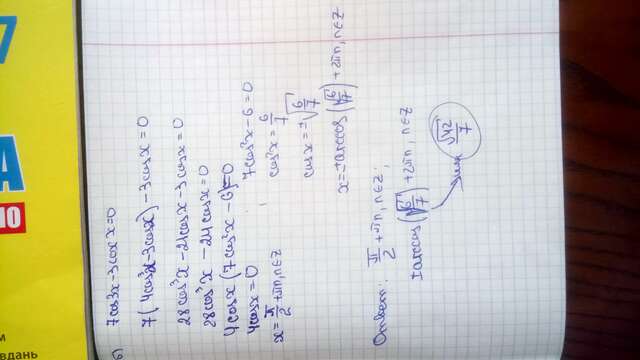 б)
7cos3x-3cosx=0
7(4cos³x-3cosx)-3cosx=0
28cos³x-21cosx-3cosx=0
28cos³x-24cosx=0
4cosx(7cos²x-6)=0
4cosx=0
x=π/2+πn, n∈Z
7cos²x-6=0
cos²x=6/7
cosx=±√6/7
x=±arccos(√6/7)+2πn, n∈Z
Ответ: π/2+πn, n∈Z;
±arccos(√6/7)+2πn, n∈Z
или
√42/7
7
А
10
вдань